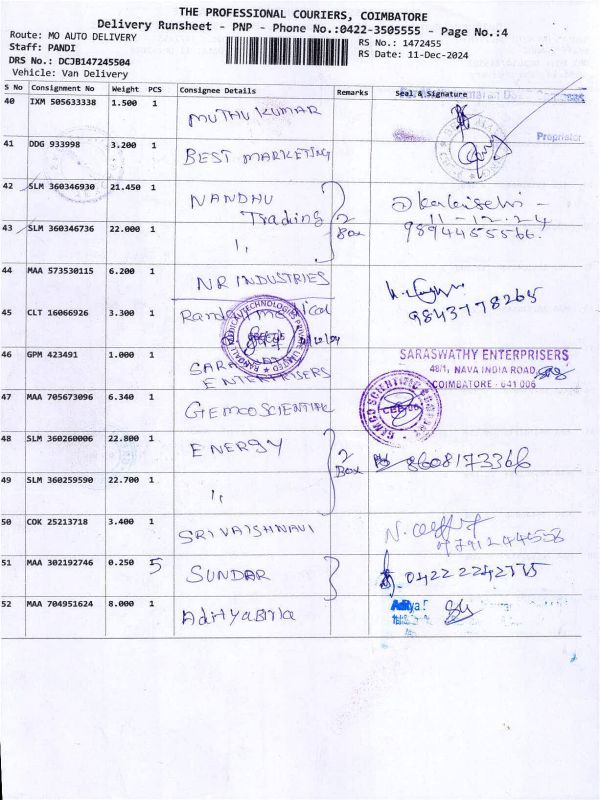 THE PROFESSIONAL COURIERS, COIMBATORE
Delivery Runsheet - PNP - Phone No.:0422-3505555 - Page No.:4
Route: MO AUTO DELIVERY
Staff: PANDI
DRS No.: DCJB147245504
Vehicle: Van Delivery
RS No.: 1472455
RS Date: 11-Dec-2024
S No Consignment No Weight PCS Consignee Details Remarks Seal & Signature
40 IXM 505633338 1.500 1 MUTHU KUMAR
Proprietor
41 DDG 933998 3.200 1 BEST MARKETING
42 SLM 360346930 21.450 1 NANDHU Trading 2 Box
11-12-24
43 SLM 360346736 22.000 1 9894455566.
44 MAA 573530115 6.200 1 NR INDUSTRIES
9843778265
45 CLT 16066926 3.300 1 medical
46 GPM 423491 1.000 1 ENTERPRISERS
SARASWATHY ENTERPRISERS
48/1, NAVA INDIA ROAD,
COIMBATORE - 641 006
47 MAA 705673096 6.340 1 GEMCO SCIENTIFIC
48 SLM 360260006 22.800 1 ENERGY 2 Box 8608173366
49 SLM 360259590 22.700 1
50 COK 25213718 3.400 1 SRI VAISHNAVI
51 MAA 302192746 0.250 5 SUNDAR 0422 2242775
52 MAA 704951624 8.000 1 Aditya Birla
Aditya